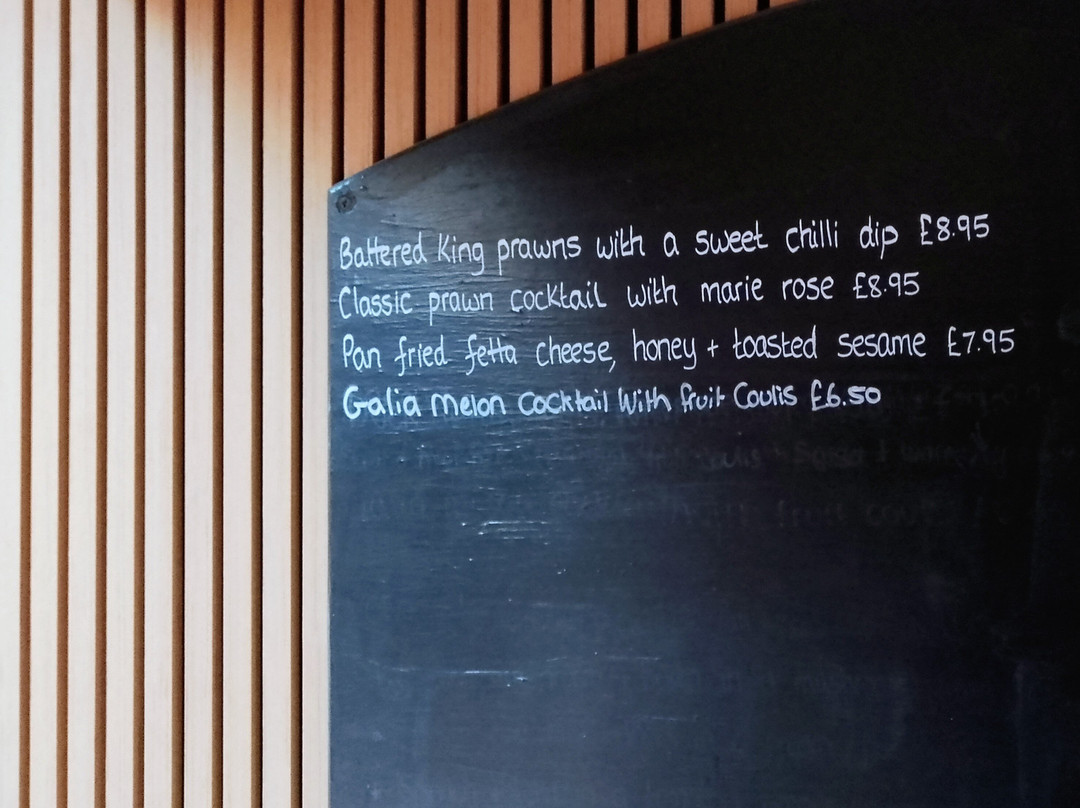 Battered King prawns with a sweet chilli dip £8.95
Classic prawn cocktail with marie rose £8.95
Pan fried fetta cheese, honey + toasted sesame £7.95
Galia Melon Cocktail With fruit Coulis £6.50